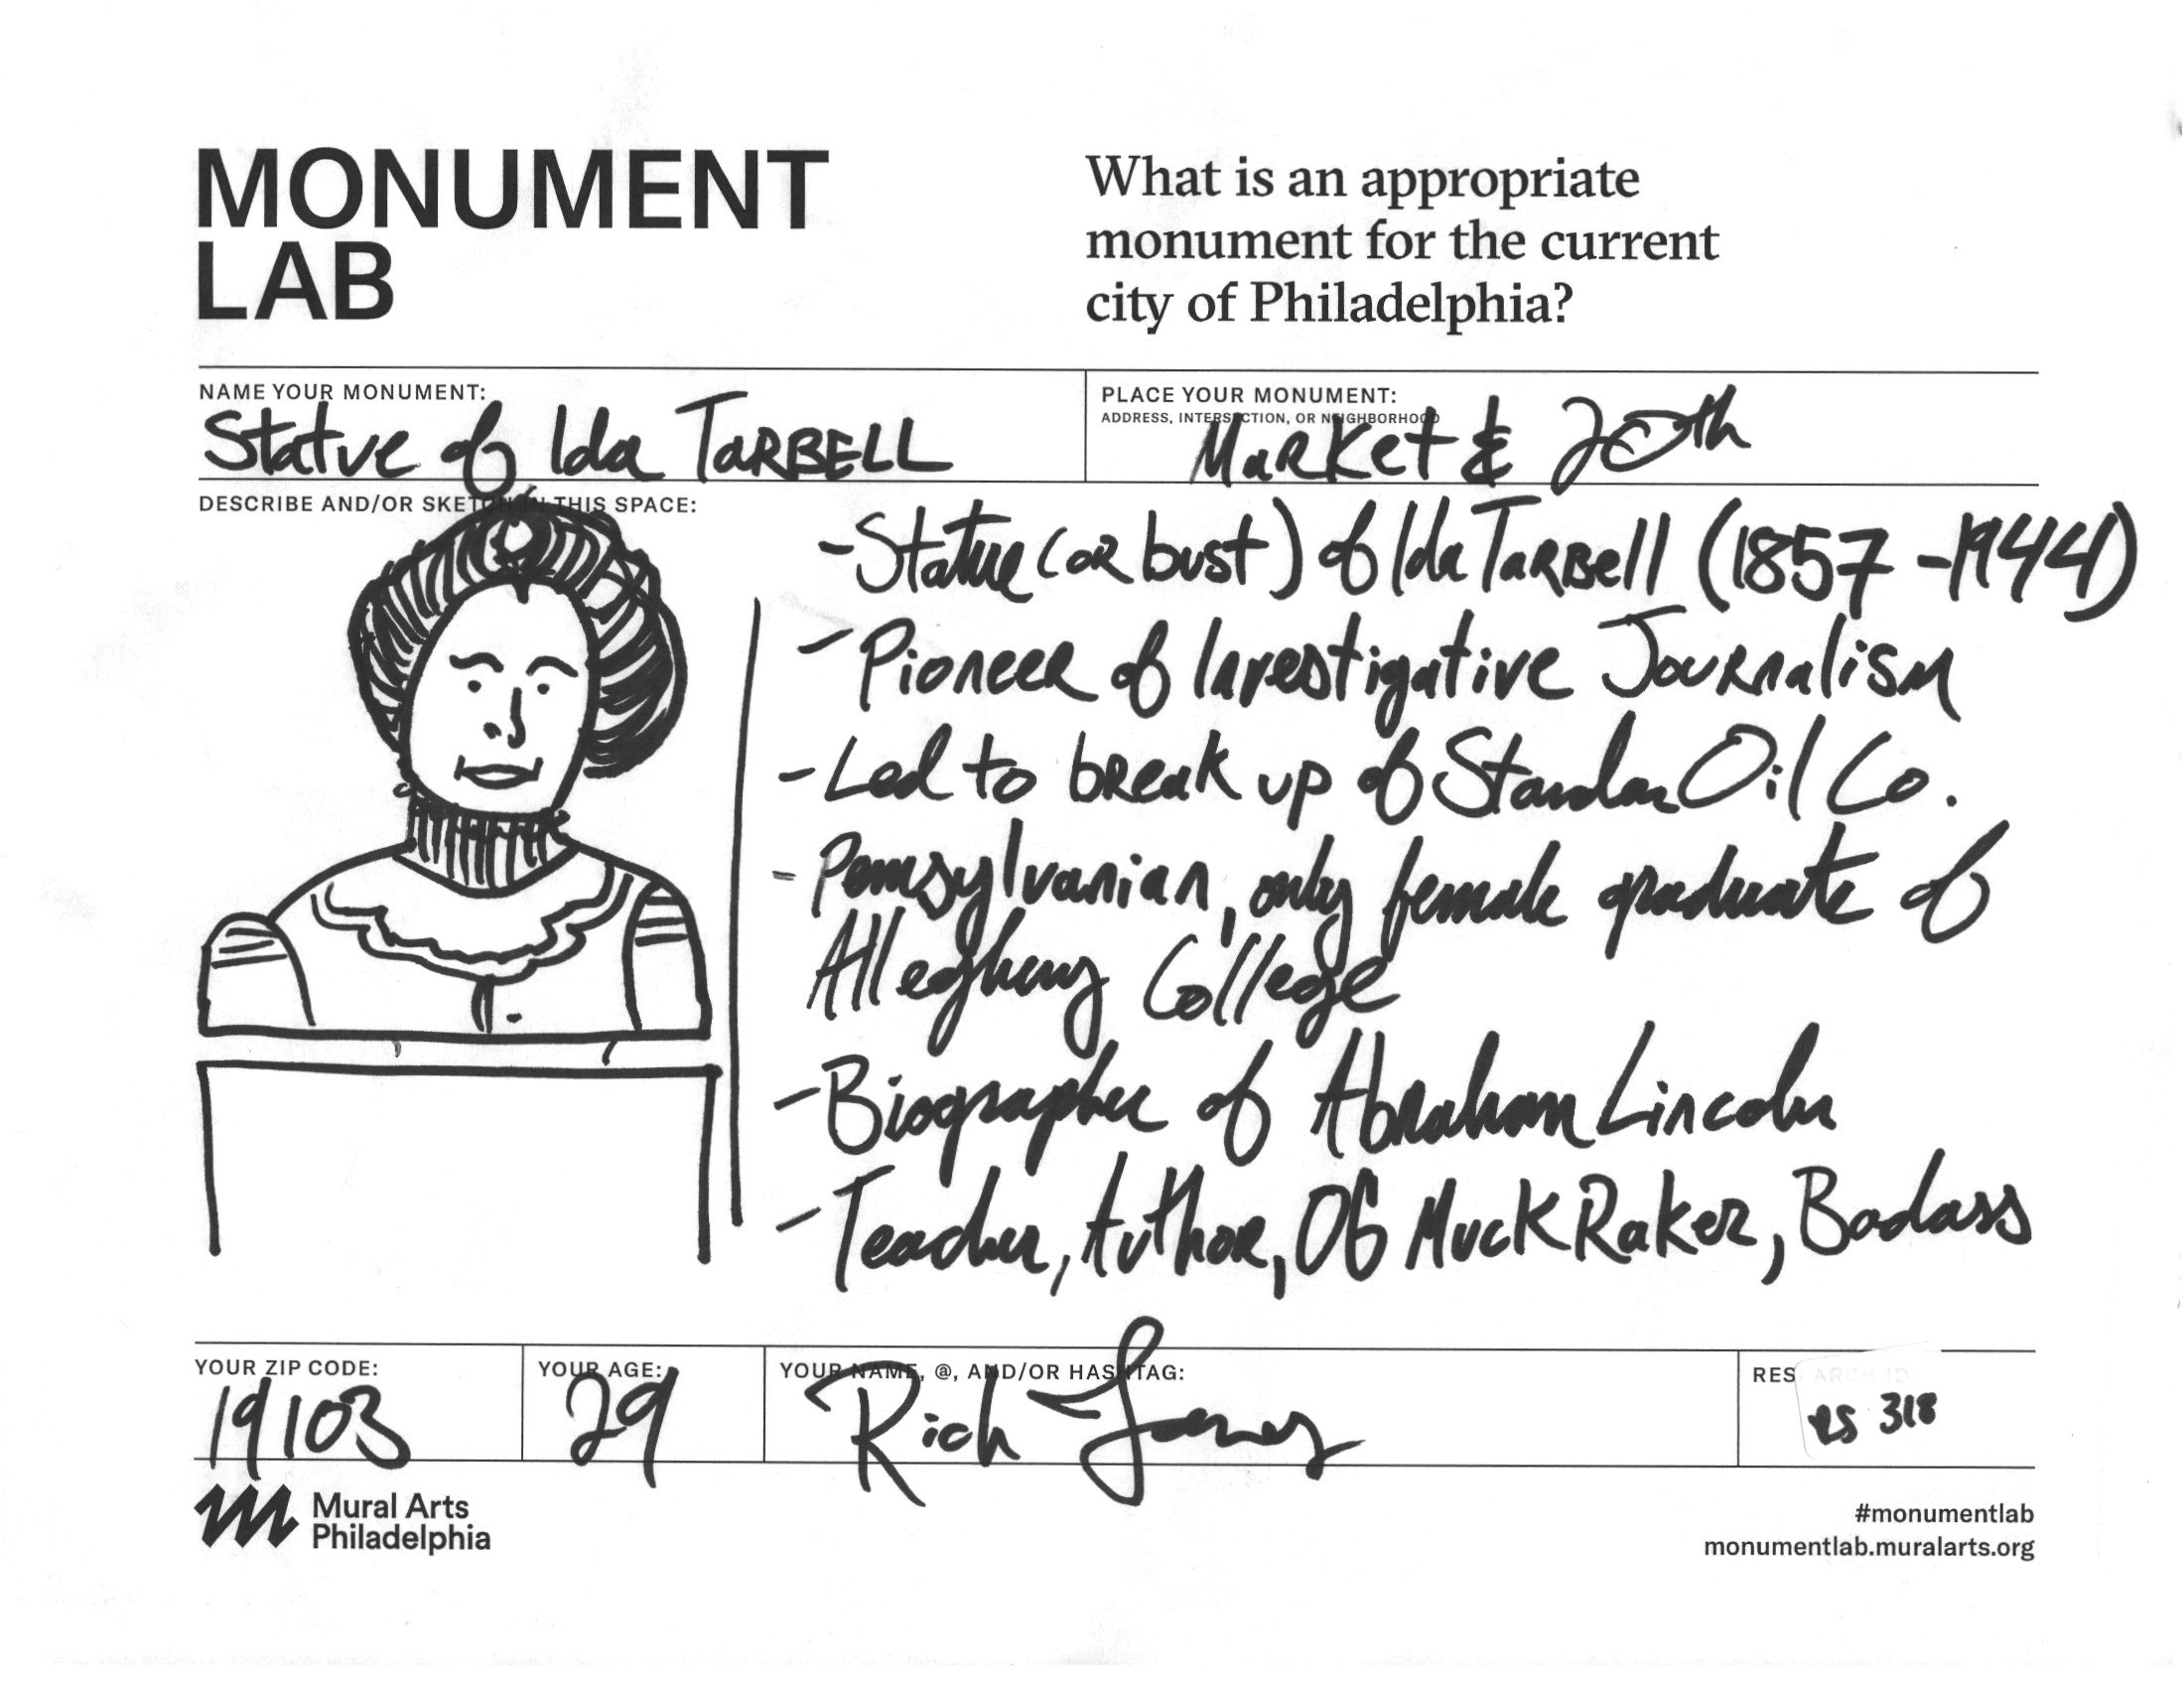 MONUMENT
LAB
What is an appropriate
monument for the current
city of Philadelphia?
NAME YOUR MONUMENT:
Statue of Ida TARBELL
PLACE YOUR MONUMENT:
ADDRESS, INTERSECTION, OR NEIGHBORHOOD
Market & 20th
DESCRIBE AND/OR SKETCH IN THIS SPACE:
- Statue (or bust) of Ida Tarbell (1857-1944)
- Pioneer of Investigative Journalism
- Led to break up of Standar Oil Co.
- Pennsylvanian, only female graduate of
Allegheny College
- Biographer of Abraham Lincoln
- Teacher, Author, OG MuckRaker, Badass
YOUR ZIP CODE:
19103
YOUR AGE:
29
YOUR NAME, @, AND/OR HASHTAG:
Rich
RESEARCH ID:
RS 318
Mural Arts
Philadelphia
#monumentlab
monumentlab.muralarts.org